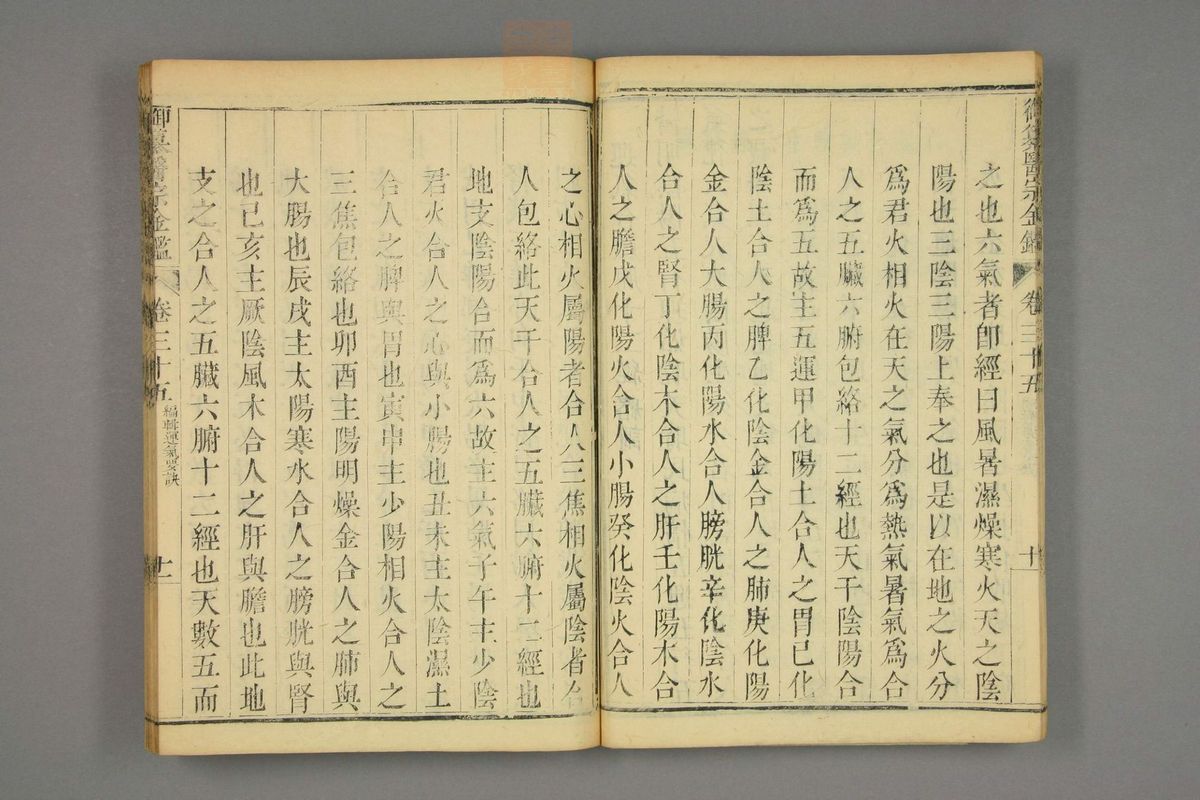 御纂醫宗金鑑 卷三十五 十
之也六氣者卽經曰風暑濕燥寒火天之陰
陽也三陰三陽上奉之也是以在地之火分
爲君火相火在天之氣分爲熱氣暑氣爲合
人之五臟六腑包絡十二經也天干陰陽合
而爲五故主五運甲化陽土合人之胃已化
陰土合人之脾乙化陰金合人之肺庚化陽
金合人大腸丙化陽水合人膀胱辛化陰水
合人之腎丁化陰木合人之肝壬化陽木合
人之膽戊化陽火合人小腸癸化陰火合人
之心相火屬陽者合人三焦相火屬陰者合
人包絡此天干合人之五臟六腑十二經也
地支陰陽合而爲六故主六氣子午主少陰
君火合人之心與小腸也丑未主太陰濕土
合人之脾與胃也寅申主少陽相火合人之
三焦包絡也卯酉主陽明燥金合人之肺與
大腸也辰戌主太陽寒水合人之膀胱與腎
也已亥主厥陰風木合人之肝與膽也此地
支之合人之五臟六腑十二經也天數五而
御纂醫宗金鑑 卷三十五 編輯運氣要訣 十一